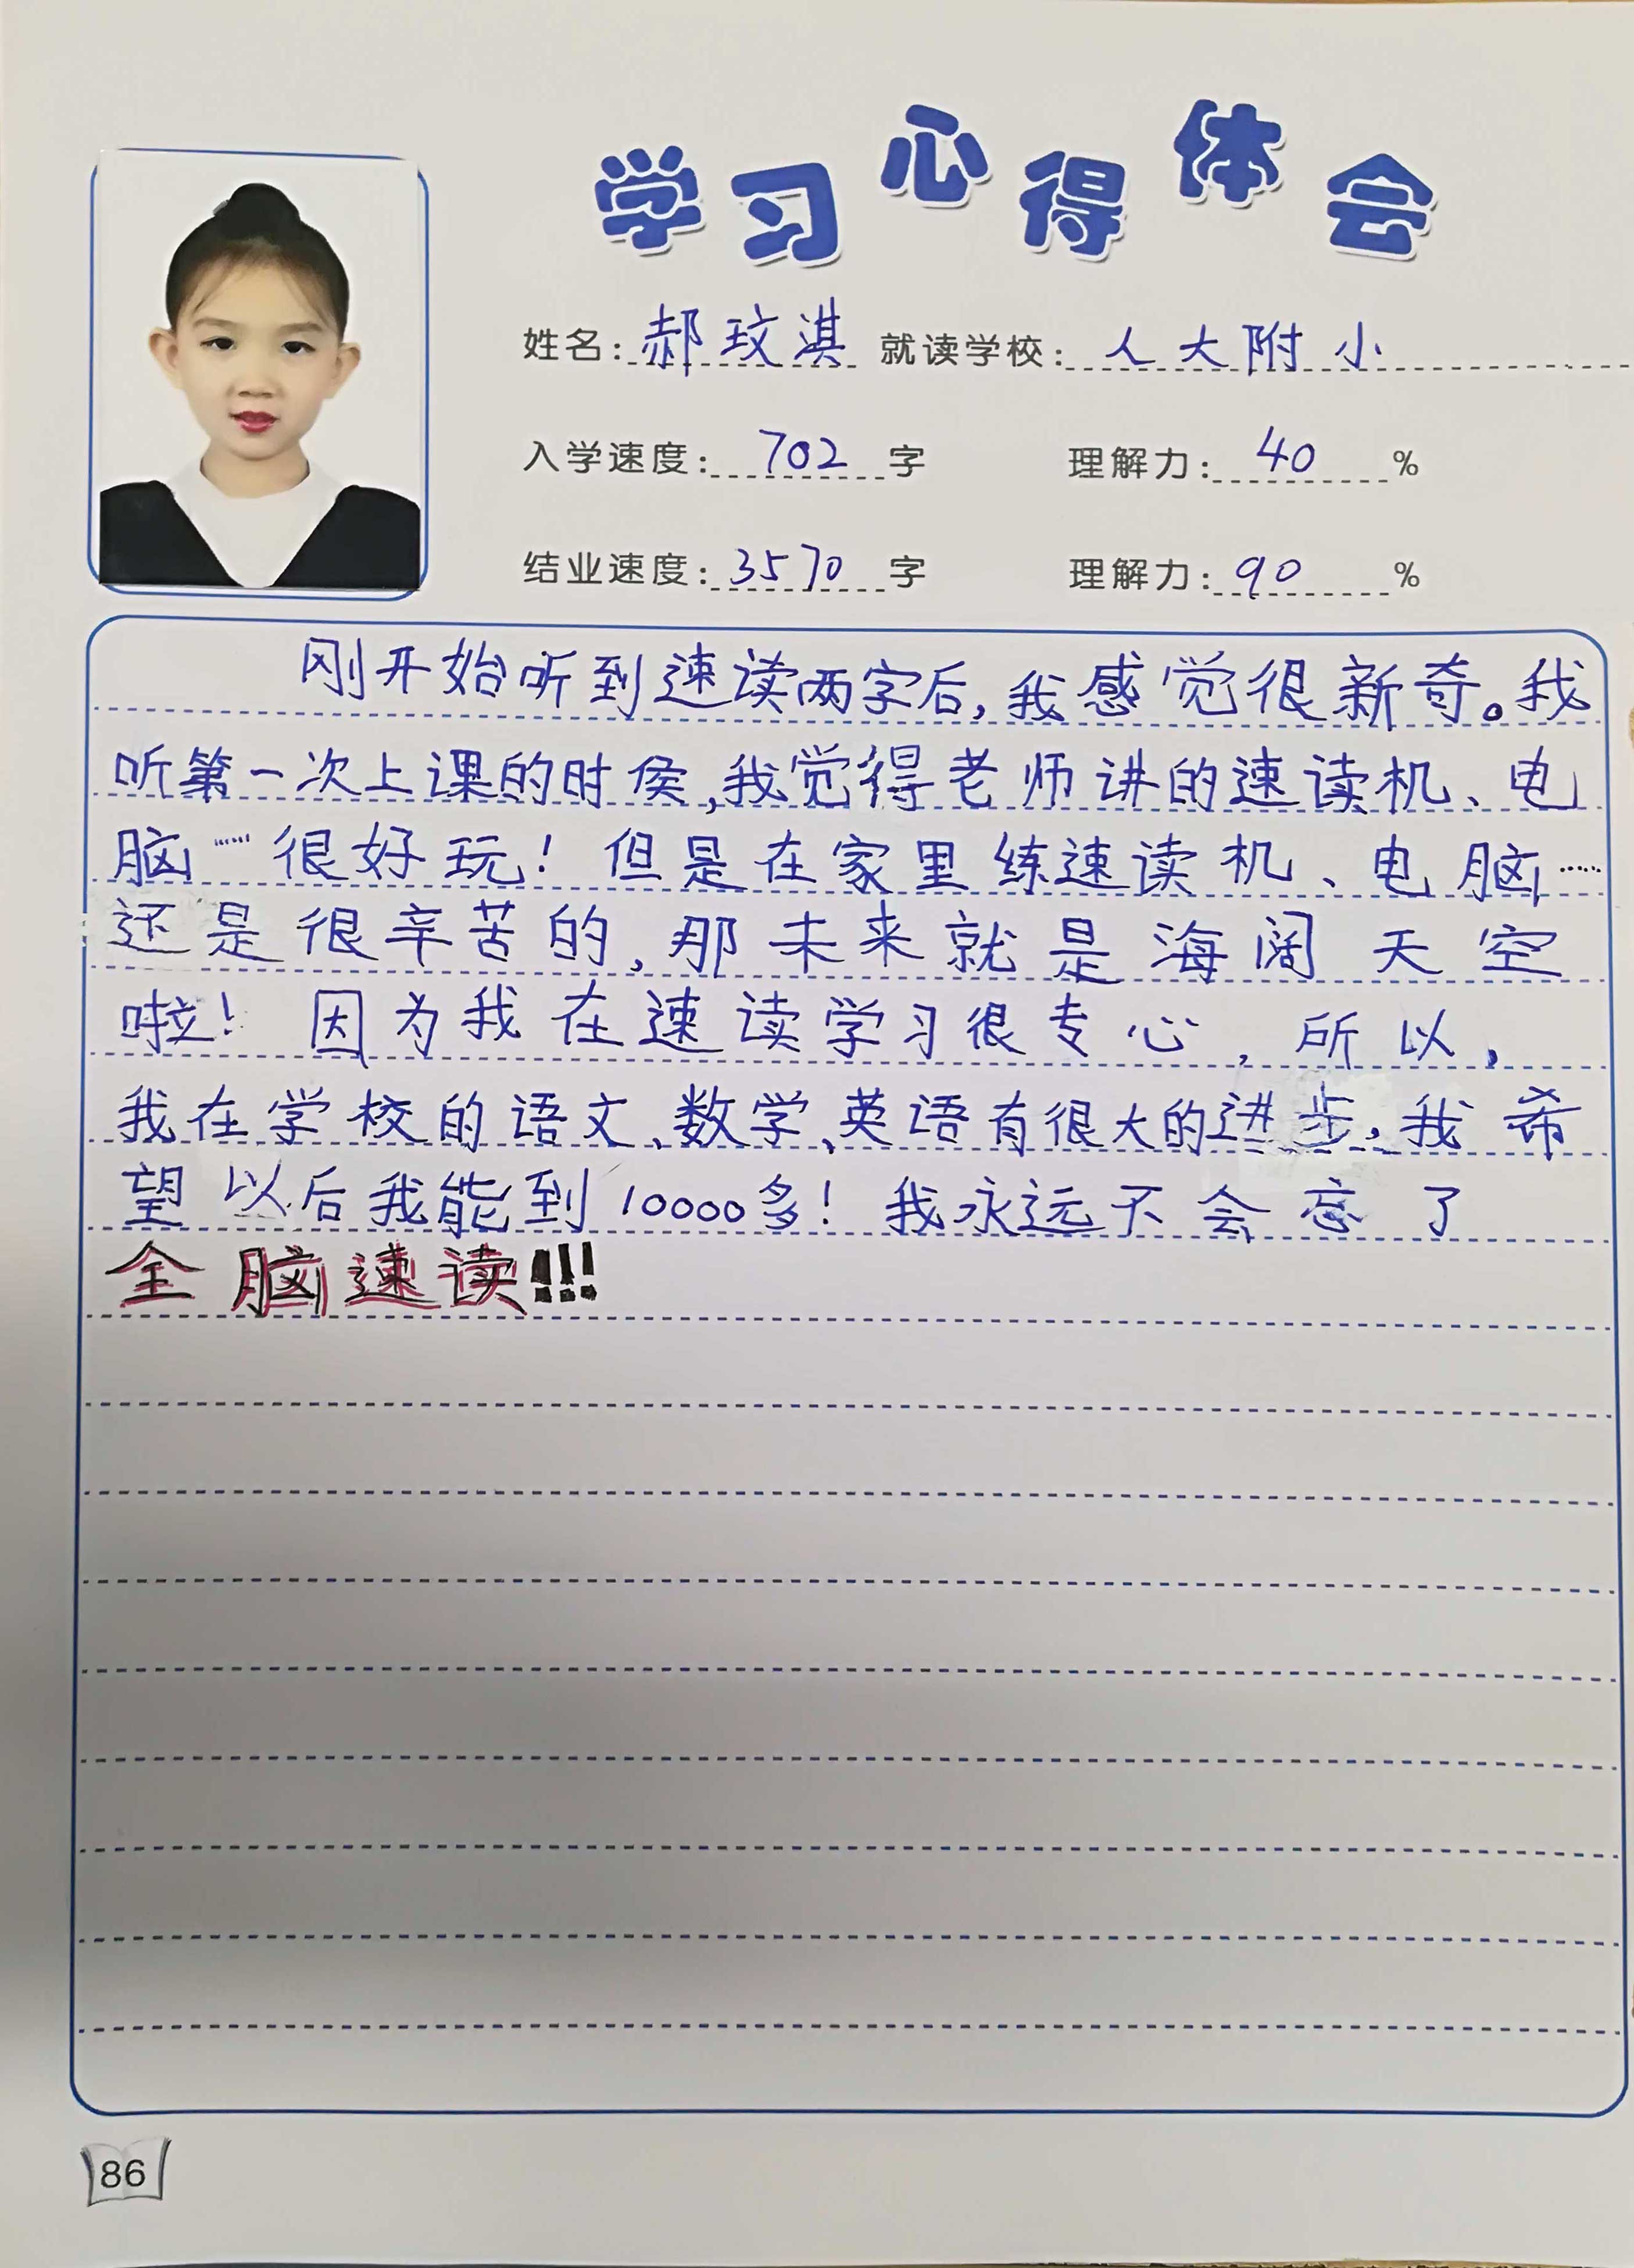 学习心得体会
姓名:郝玟淇 就读学校:人大附小
入学速度:702字 理解力:40%
结业速度:3570字 理解力:90%
刚开始听到速读两字后,我感觉很新奇。我
听第一次上课的时侯,我觉得老师讲的速读机、电
脑……很好玩!但是在家里练速读机、电脑……
还是很辛苦的,那未来就是海阔天空
啦!因为我在速读学习很专心,所以,
我在学校的语文、数学、英语有很大的进步,我希
望以后我能到10000多!我永远不会忘了
全脑速读!!!
86